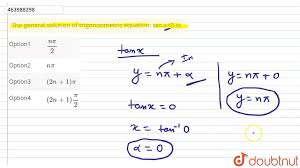 463988298
The general solution of trigonometric equation tan x=0 is
Option1 nπ/2
Option2 nπ
Option3 (2n + 1)π
Option4 (2n + 1) π/2
tanx
In
y = nπ + α
tanx = 0
x = tan⁻¹ 0
α = 0
y = nπ + 0
y = nπ
doubtnut